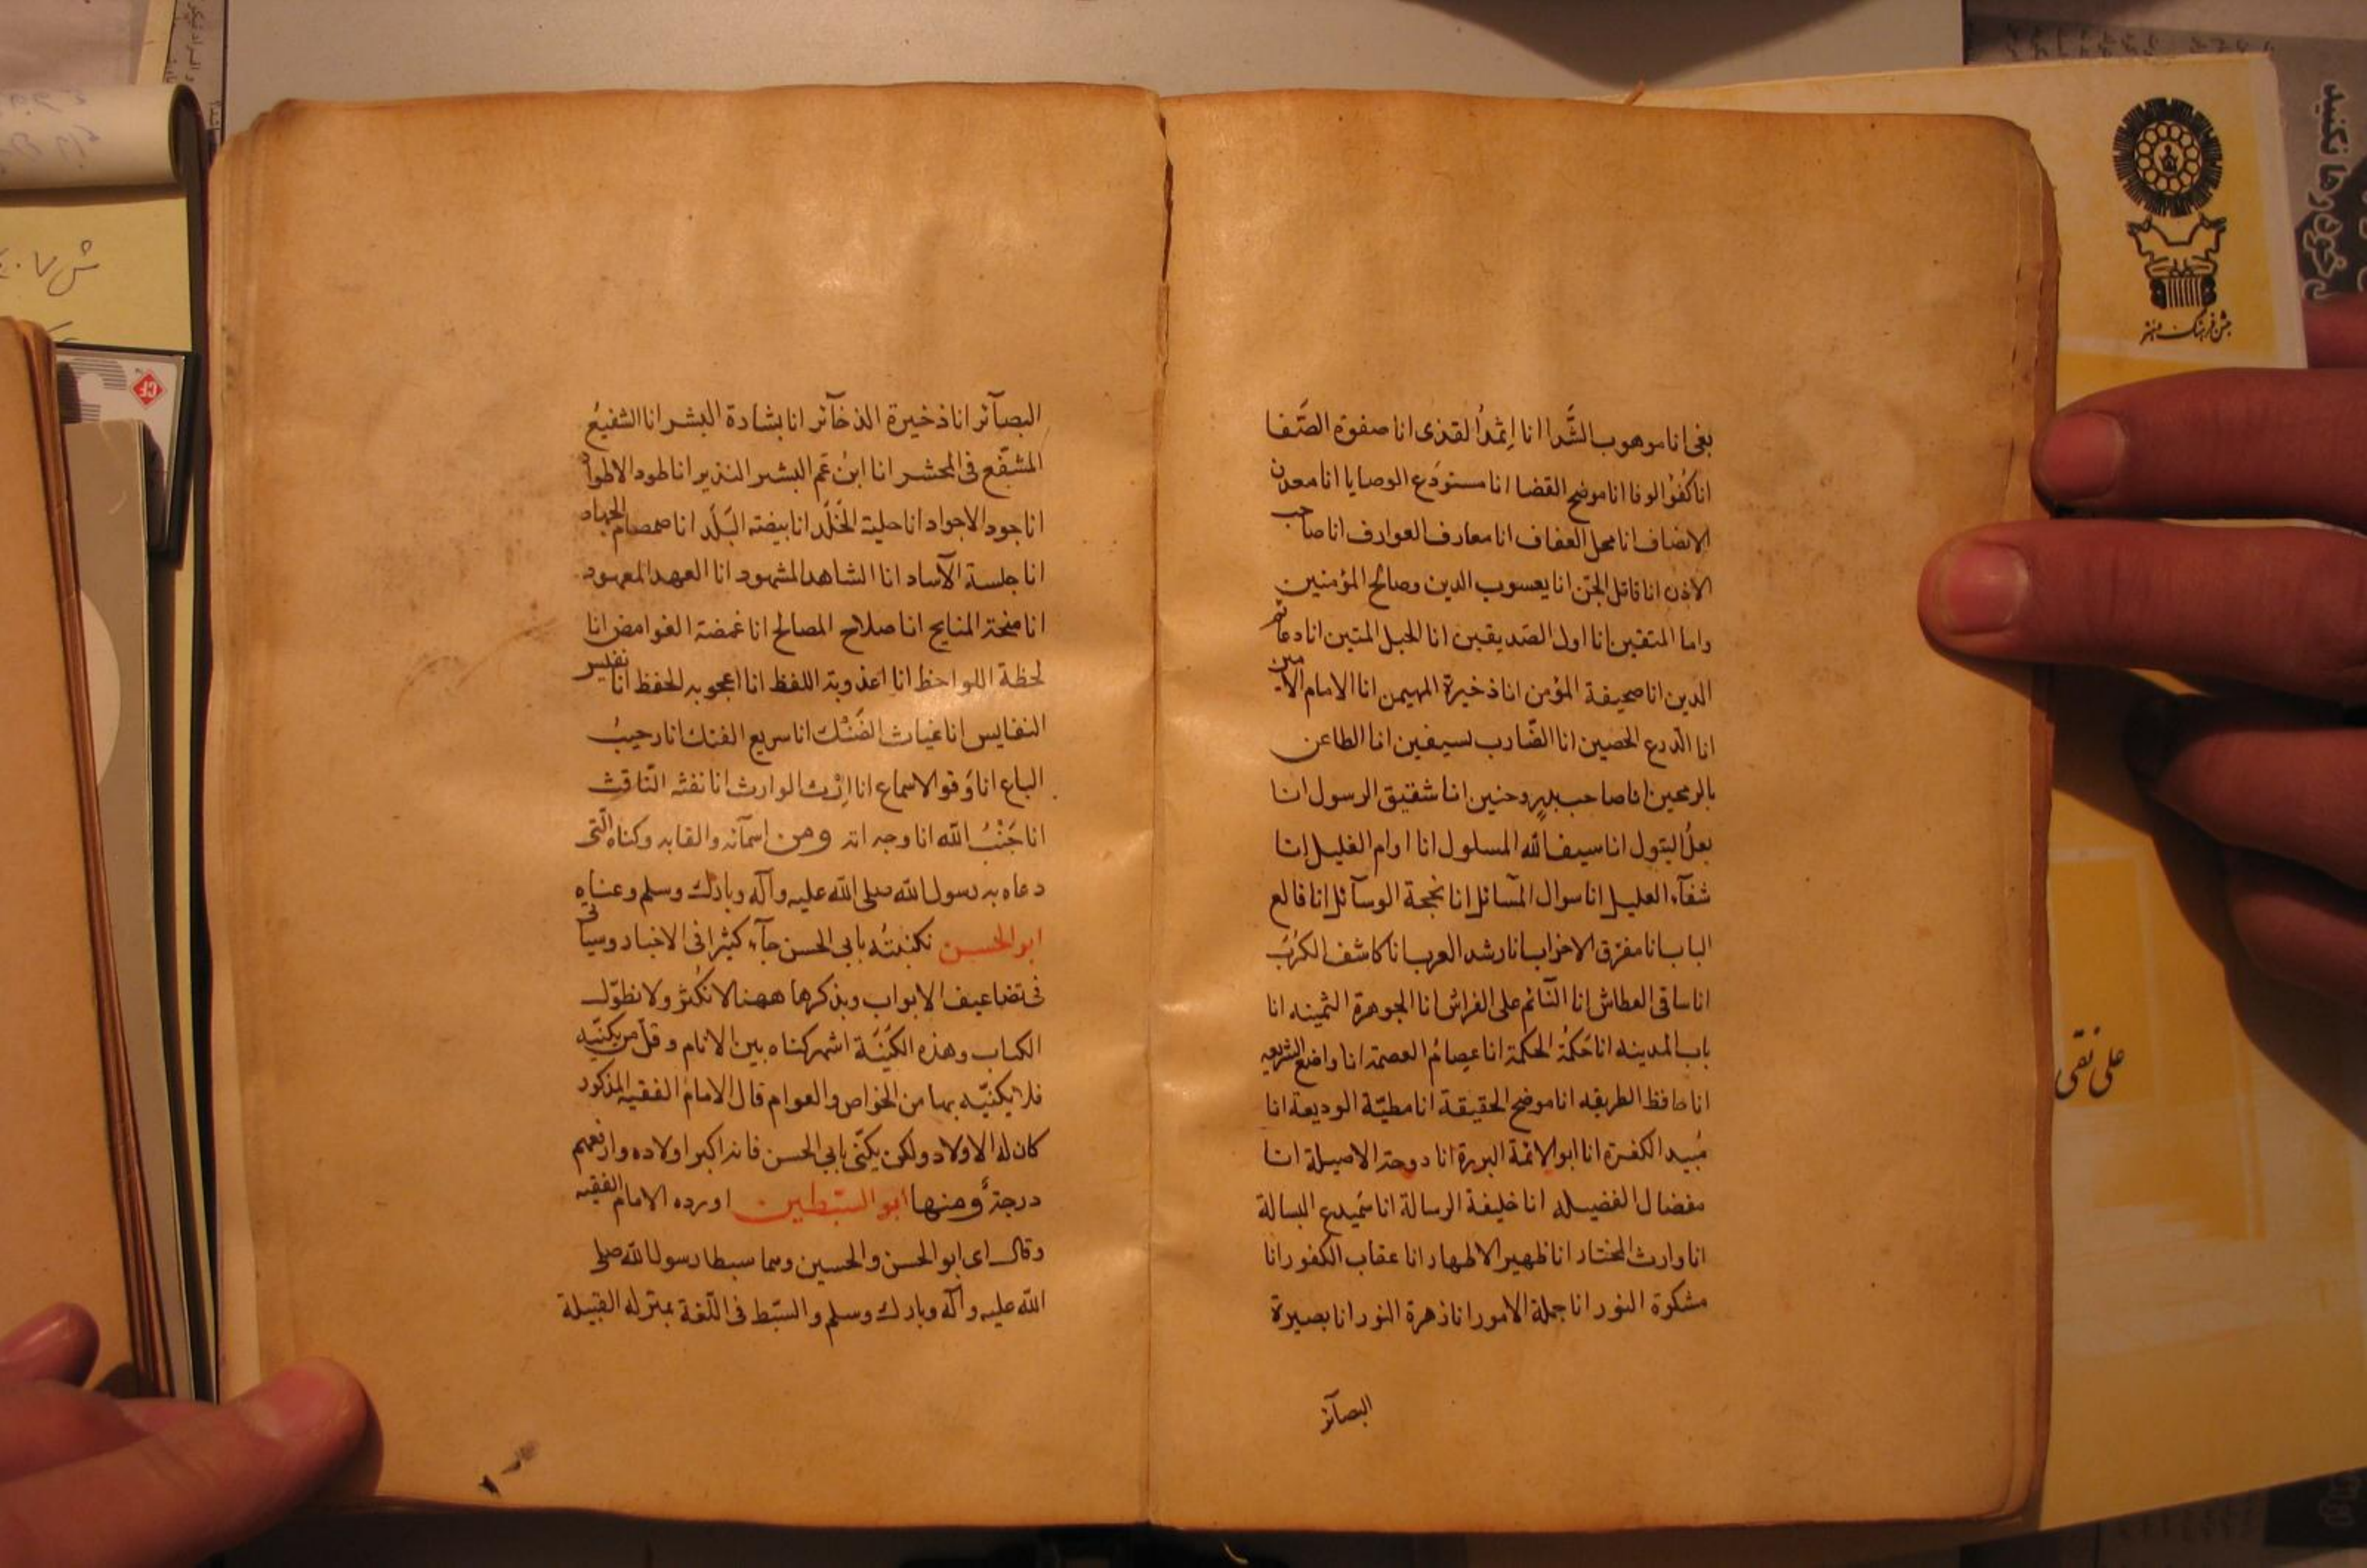 بغى انا موهوب الشَّذا انا اِثمدُ القذى انا صفوة الصَّفا
انا كُفْوُ الوفا انا موضح القضا انا مستودَع الوصايا انا معدن
الانصاف انا محل العفاف انا معارف العوارف انا صاحب
الاذن انا قاتل الجن انا يعسوب الدين وصالح المؤمنين
واما المتقين انا اول الصديقين انا الحبل المتين انا دعامة
الدين انا صحيفة المؤمن انا ذخيرة المهيمن انا الامام الامين
انا الدرع الحصين انا الضّارب بسيفين انا الطاعن
بالرمحين انا صاحب بدرٍ وحنين انا شقيق الرسول انا
بعلُ البتول انا سيف الله المسلول انا اوام الغليل انا
شفآء العليل انا سوال المسآئل انا نجحة الوسآئل انا قالع
الباب انا مفرّق الاحزاب انا رشد العرب انا كاشف الكُرَب
انا ساقى العطاش انا النّآئم على الفراش انا الجوهرة الثمينه انا
باب المدينه انا حَكمُة الحكمة انا عِصامُ العصمة انا واضع الشريعه
انا حافظ الطريقه انا موضح الحقيقة انا مطيّة الوديعة انا
مُبيد الكفرة انا ابو الائمّة البررة انا دوحة الاصيلة انا
مفضال الفضيله انا خليفة الرسالة انا سَميدع البسالة
انا وارث المختار انا ظهير الاطهار انا عقاب الكفور انا
مشكوة النور انا جملة الامور انا زهرة النور انا بصيرة
البصآئر
البصآئر انا ذخيرة الذخآئر انا بشارة البشر انا الشفيعُ
المشفّع فى المحشر انا ابنُ عَم البشير النذير انا طود الاطواد
انا جود الاجواد انا حلية الخَلَد انا بيضة البَلَد انا صمصام الجهاد
انا جلسة الآساد انا الشاهد المشهود انا العهد المعهود
انا منحة المنايح انا صلاح المصالح انا غمضة الغوامض انا
لحظة اللواحظ انا اعذوبة اللفظ انا اعجوبه الحفظ انا نفيس
النفايس انا غياث الضَنْك انا سريع الفتك انا رحيبُ
الباع انا وَقو الاسماع انا اِرْث الوارث انا نفثه النّافث
انا جَنْبُ الله انا وجه الله ومن اسمآئه والقابه وكناه الّتى
دعاه به رسول الله صلى الله عليه وآله وبارك وسلم وعناه
ابو الحسن نكنيتُه بابي الحسن جآء كثيرا فى الاخبار وسياتى
فى تضاعيف الابواب وبذكرها ههنا لا نُكثر ولا نطوّل
الكتاب وهذه الكُنيَة اشهر كناه بين الانام وقلّ من يكنّيه
فلا يكنّيه بها من الخواص والعوام قال الامام الفقيه المذكور
كان له الاولاد ولكن يكنّى بابي الحسن فانه اكبر اولاده وارفعهم
درجةً ومنها ابو السّبطين اورده الامام الفقيه
وقال اى ابو الحسن والحسين وهما سبطا رسول الله صلى
الله عليه وآله وبارك وسلم والسّبط فى اللّغة بمنزله القبيلة
على نقى
جشن فرهنگ و هنر